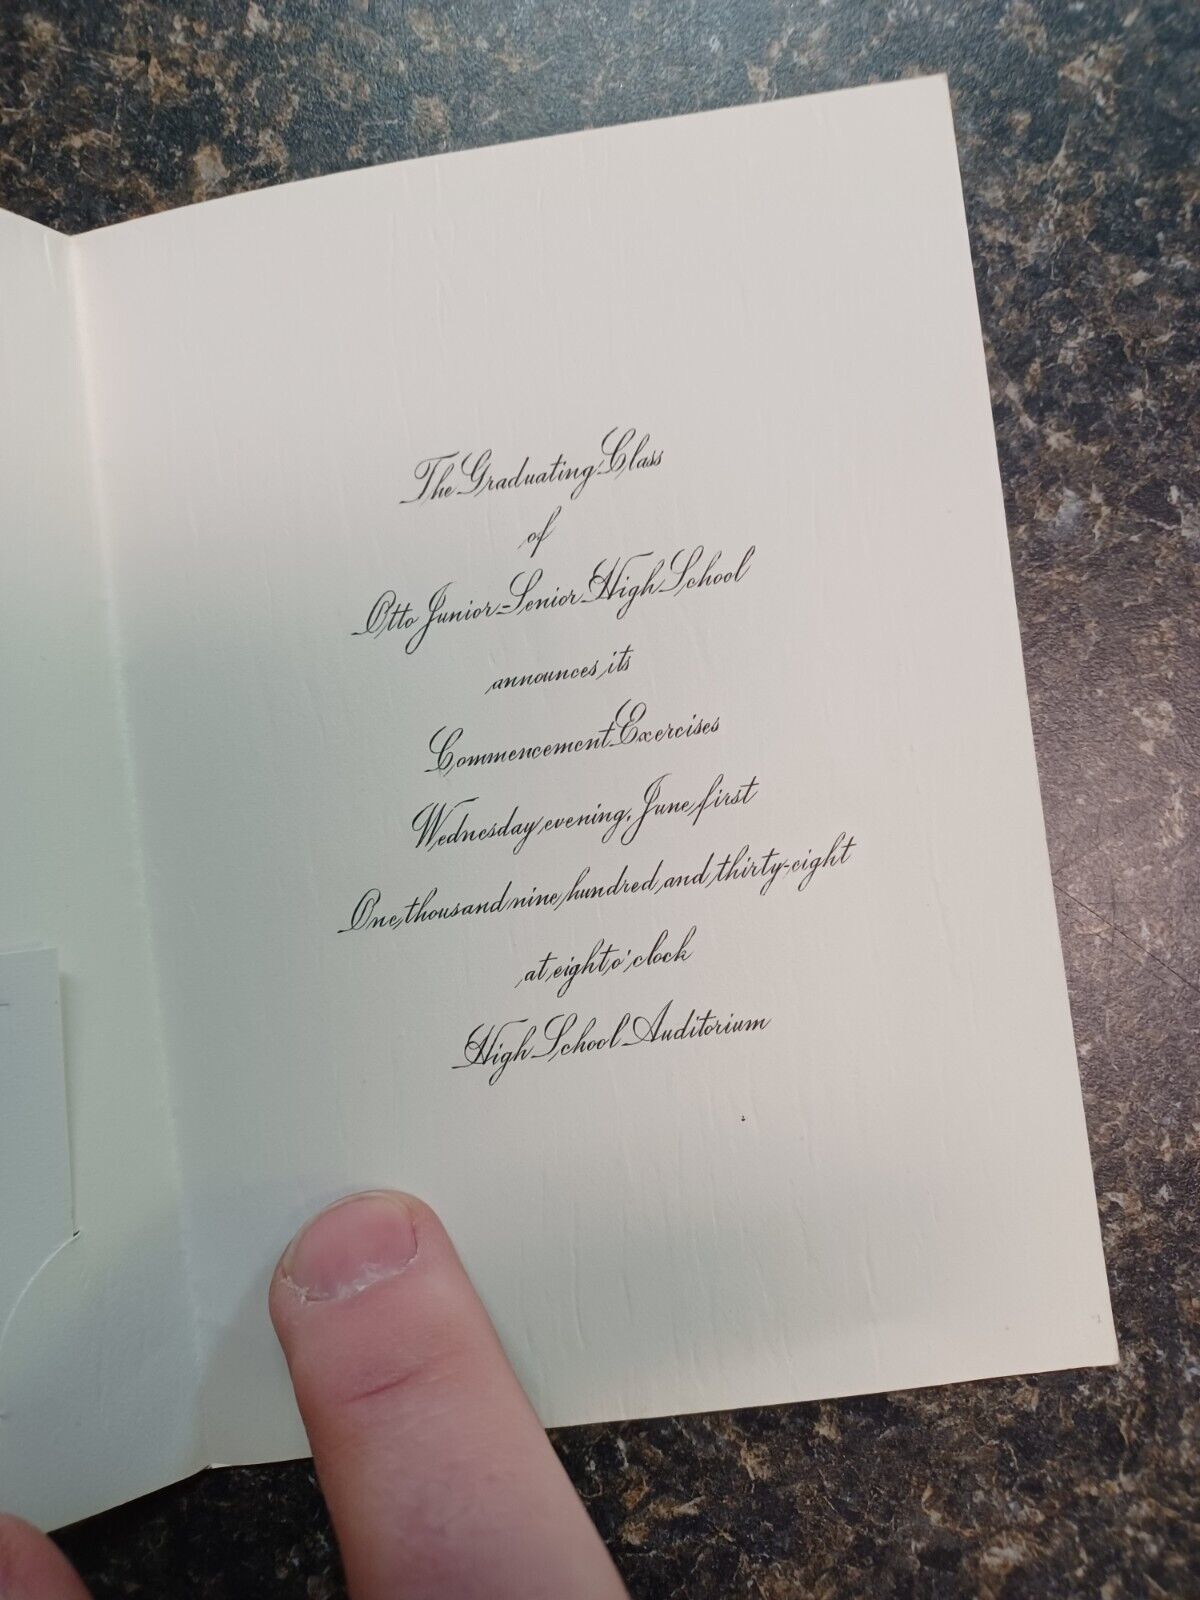 The Graduating Class
of
Otto Junior-Senior High School
announces its
Commencement Exercises
Wednesday evening, June first
One thousand nine hundred and thirty-eight
at eight o'clock
High School Auditorium